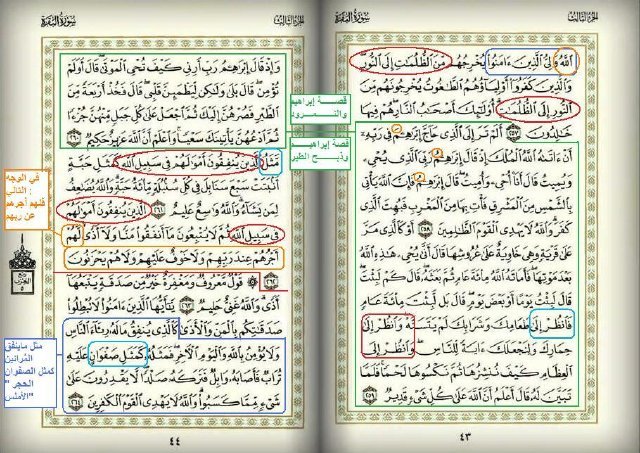 الجزء الثالث
سورة البقرة
ٱللَّهُ وَلِىُّ ٱلَّذِينَ ءَامَنُوا۟ يُخْرِجُهُم مِّنَ ٱلظُّلُمَٰتِ إِلَى ٱلنُّورِ
وَٱلَّذِينَ كَفَرُوٓا۟ أَوْلِيَآؤُهُمُ ٱلطَّٰغُوتُ يُخْرِجُونَهُم مِّنَ
ٱلنُّورِ إِلَى ٱلظُّلُمَٰتِ أُو۟لَٰٓئِكَ أَصْحَٰبُ ٱلنَّارِ هُمْ فِيهَا
خَٰلِدُونَ ٢٥٧ أَلَمْ تَرَ إِلَى ٱلَّذِى حَآجَّ إِبْرَٰهِۦمَ فِى رَبِّهِۦٓ
أَنْ ءَاتَىٰهُ ٱللَّهُ ٱلْمُلْكَ إِذْ قَالَ إِبْرَٰهِۦمُ رَبِّىَ ٱلَّذِى يُحْىِۦ
وَيُمِيتُ قَالَ أَنَا۠ أُحْىِۦ وَأُمِيتُ قَالَ إِبْرَٰهِۦمُ فَإِنَّ ٱللَّهَ يَأْتِى
بِٱلشَّمْسِ مِنَ ٱلْمَشْرِقِ فَأْتِ بِهَا مِنَ ٱلْمَغْرِبِ فَبُهِتَ ٱلَّذِى
كَفَرَ وَٱللَّهُ لَا يَهْدِى ٱلْقَوْمَ ٱلظَّٰلِمِينَ ٢٥٨ أَوْ كَٱلَّذِى مَرَّ
عَلَىٰ قَرْيَةٍ وَهِىَ خَاوِيَةٌ عَلَىٰ عُرُوشِهَا قَالَ أَنَّىٰ يُحْىِۦ هَٰذِهِ ٱللَّهُ
بَعْدَ مَوْتِهَا فَأَمَاتَهُ ٱللَّهُ مِا۟ئَةَ عَامٍ ثُمَّ بَعَثَهُۥ قَالَ كَمْ لَبِثْتَ
قَالَ لَبِثْتُ يَوْمًا أَوْ بَعْضَ يَوْمٍ قَالَ بَل لَّبِثْتَ مِا۟ئَةَ عَامٍ
فَٱنظُرْ إِلَىٰ طَعَامِكَ وَشَرَابِكَ لَمْ يَتَسَنَّهْ وَٱنظُرْ إِلَىٰ
حِمَارِكَ وَلِنَجْعَلَكَ ءَايَةً لِّلنَّاسِ وَٱنظُرْ إِلَى
ٱلْعِظَامِ كَيْفَ نُنشِزُهَا ثُمَّ نَكْسُوهَا لَحْمًا فَلَمَّا
تَبَيَّنَ لَهُۥ قَالَ أَعْلَمُ أَنَّ ٱللَّهَ عَلَىٰ كُلِّ شَىْءٍ قَدِيرٌ ٢٥٩
٤٣
قصة إبراهيم
والنمرود
قصة إبراهيم
وذبح الطير
الجزء الثالث
سورة البقرة
وَإِذْ قَالَ إِبْرَٰهِۦمُ رَبِّ أَرِنِى كَيْفَ تُحْىِ ٱلْمَوْتَىٰ قَالَ أَوَلَمْ
تُؤْمِن قَالَ بَلَىٰ وَلَٰكِن لِّيَطْمَئِنَّ قَلْبِى قَالَ فَخُذْ أَرْبَعَةً مِّنَ
ٱلطَّيْرِ فَصُرْهُنَّ إِلَيْكَ ثُمَّ ٱجْعَلْ عَلَىٰ كُلِّ جَبَلٍ مِّنْهُنَّ جُزْءًا
ثُمَّ ٱدْعُهُنَّ يَأْتِينَكَ سَعْيًا وَٱعْلَمْ أَنَّ ٱللَّهَ عَزِيزٌ حَكِيمٌ ٢٦٠
مَّثَلُ ٱلَّذِينَ يُنفِقُونَ أَمْوَٰلَهُمْ فِى سَبِيلِ ٱللَّهِ كَمَثَلِ حَبَّةٍ
أَنۢبَتَتْ سَبْعَ سَنَابِلَ فِى كُلِّ سُنۢبُلَةٍ مِّا۟ئَةُ حَبَّةٍ وَٱللَّهُ يُضَٰعِفُ
لِمَن يَشَآءُ وَٱللَّهُ وَٰسِعٌ عَلِيمٌ ٢٦١ ٱلَّذِينَ يُنفِقُونَ أَمْوَٰلَهُمْ
فِى سَبِيلِ ٱللَّهِ ثُمَّ لَا يُتْبِعُونَ مَآ أَنفَقُوا۟ مَنًّا وَلَآ أَذًى لَّهُمْ
أَجْرُهُمْ عِندَ رَبِّهِمْ وَلَا خَوْفٌ عَلَيْهِمْ وَلَا هُمْ يَحْزَنُونَ
٢٦٢ ۞ قَوْلٌ مَّعْرُوفٌ وَمَغْفِرَةٌ خَيْرٌ مِّن صَدَقَةٍ يَتْبَعُهَآ
أَذًى وَٱللَّهُ غَنِىٌّ حَلِيمٌ ٢٦٣ يَٰٓأَيُّهَا ٱلَّذِينَ ءَامَنُوا۟ لَا تُبْطِلُوا۟
صَدَقَٰتِكُم بِٱلْمَنِّ وَٱلْأَذَىٰ كَٱلَّذِى يُنفِقُ مَالَهُۥ رِئَآءَ ٱلنَّاسِ
وَلَا يُؤْمِنُ بِٱللَّهِ وَٱلْيَوْمِ ٱلْءَاخِرِ فَمَثَلُهُۥ كَمَثَلِ صَفْوَانٍ عَلَيْهِ
تُرَابٌ فَأَصَابَهُۥ وَابِلٌ فَتَرَكَهُۥ صَلْدًا لَّا يَقْدِرُونَ عَلَىٰ
شَىْءٍ مِّمَّا كَسَبُوا۟ وَٱللَّهُ لَا يَهْدِى ٱلْقَوْمَ ٱلْكَٰفِرِينَ ٢٦٤
٤٤
في الوجه
التالي :
فلهم أجرهم
عن ربهم
ربع
الحزب
٥
مثل ماينفق
المرائين
كمثل الصفوان
" الحجر
الأملس"